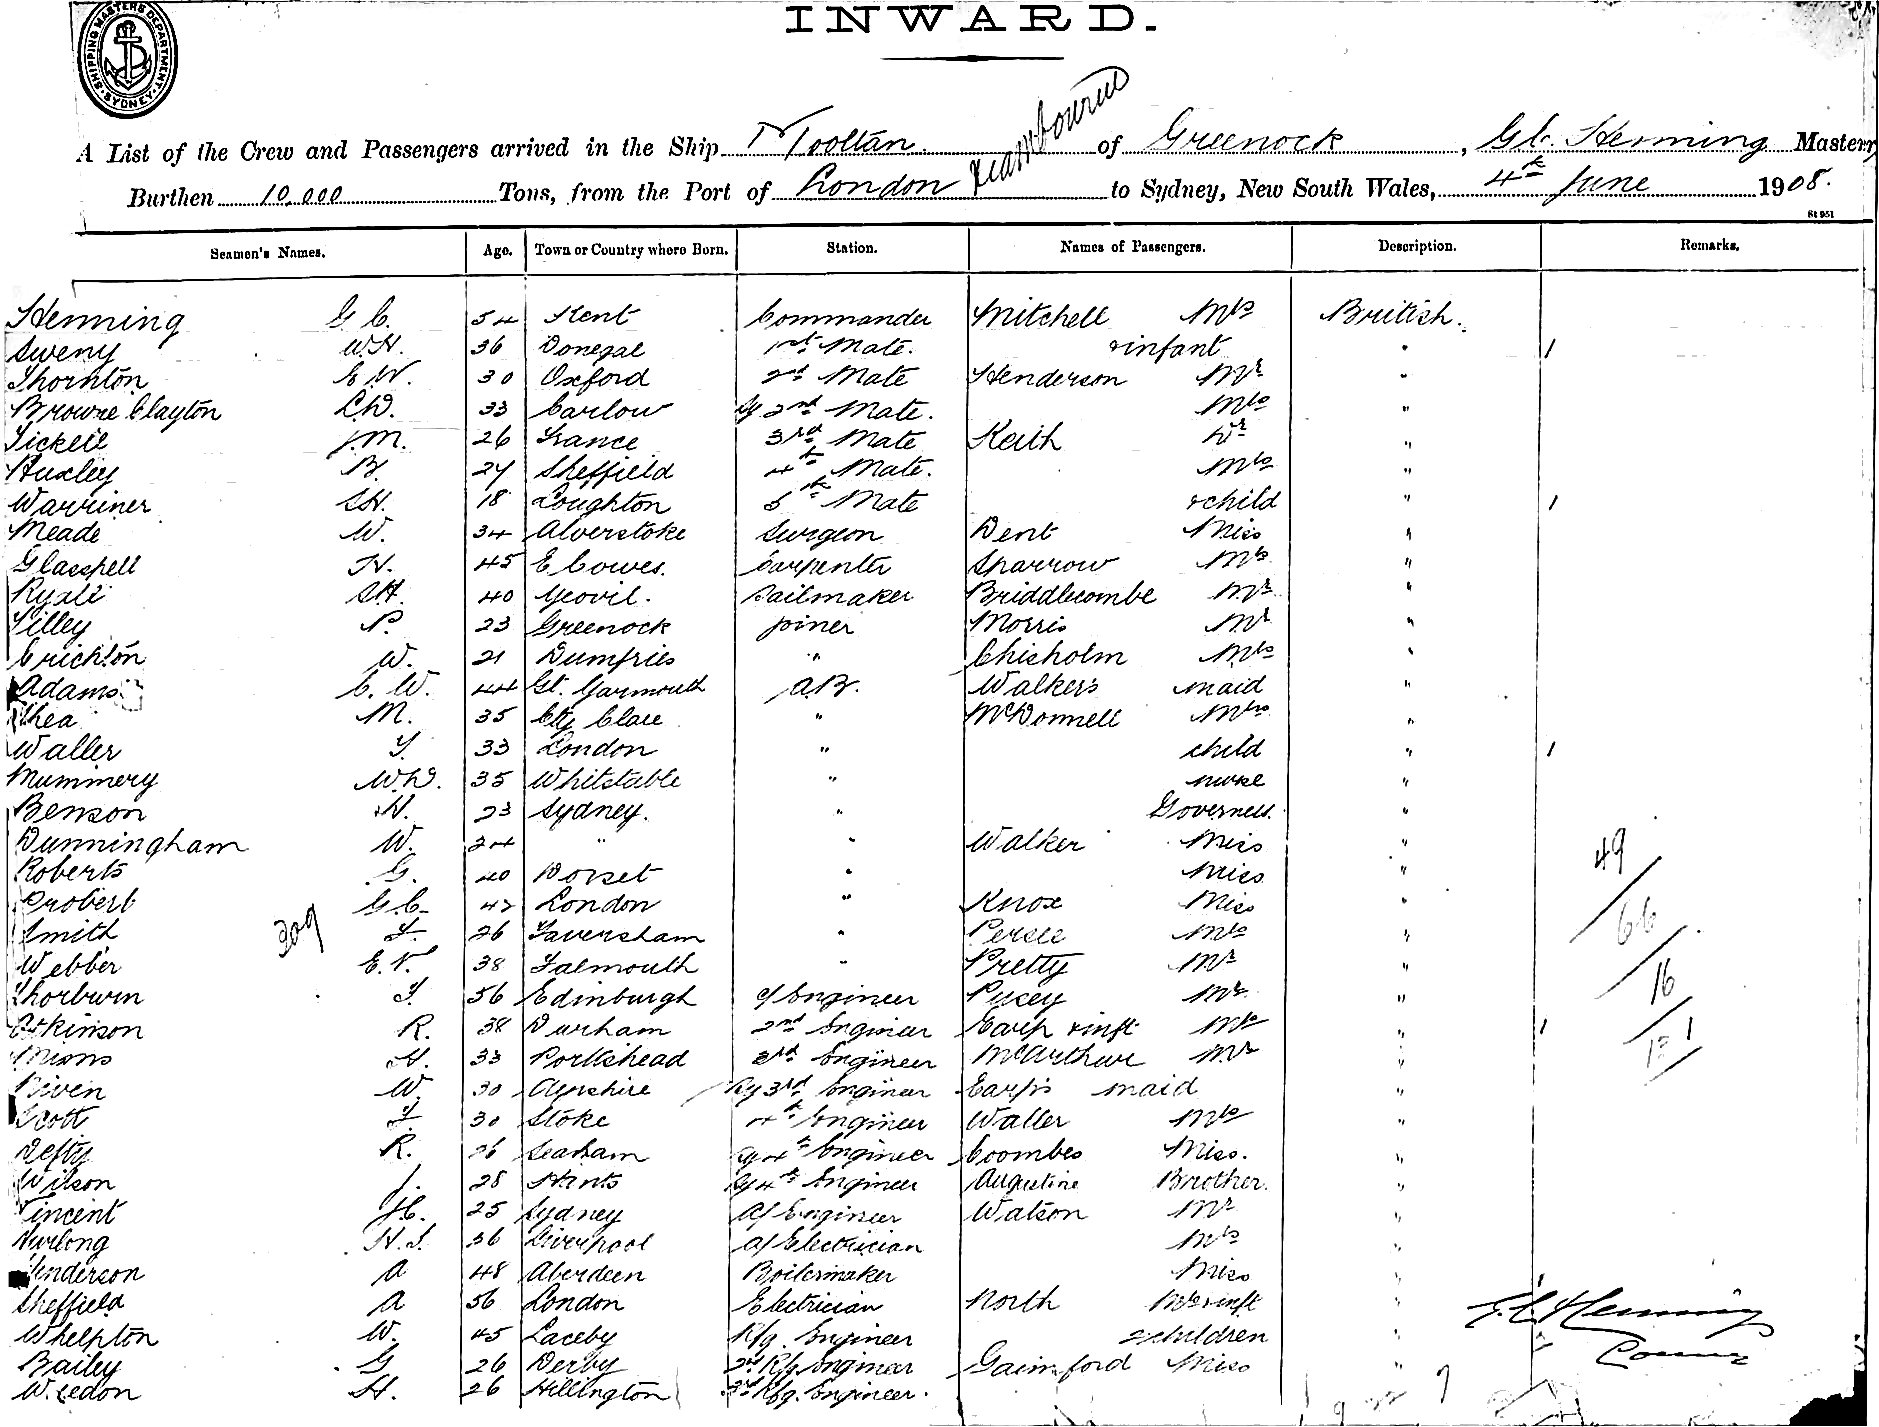 INWARD.
SHIPPING MASTERS DEPARTMENT. SYDNEY
A List of the Crew and Passengers arrived in the Ship Mooltan of Greenock, G C. Henning Master,
Burthen 10,000 Tons, from the Port of London to Sydney, New South Wales, 4th June 1908.
St 951
Seamen's Names. Age. Town or Country where Born. Station. Names of Passengers. Description. Remarks.
Henning G C. 54 Kent Commander Mitchell Mrs British.
Sweny W.H. 36 Donegal 1st Mate. & infant " 1
Thornton E W. 30 Oxford 2nd Mate Henderson Mr "
Browne Clayton 33 Carlow 2nd Mate. Mrs "
Tickell J.M. 26 France 3rd Mate Keith Dr "
Huxley B. 27 Sheffield 4th Mate. Mrs "
Warriner SH. 18 Loughton 5th Mate & child " 1
Meade W. 34 Alverstoke Surgeon Dent Miss "
Glasspell H. 45 E Cowes. Carpenter Sparrow Mrs "
SH. 40 Yeovil. Sailmaker Briddlecombe Mr "
Tilley P. 23 Greenock joiner Morris Mr "
Crichton W. 21 Dumfries " Chisholm Mrs "
Adams C. W. 44 Gt. Yarmouth A.B. Walker's maid "
Shea M. 35 Cty Clare " McDonnell Mrs "
Waller T. 33 London " child " 1
Mummery W.D. 35 Whitstable " nurse "
Benson H. 23 Sydney. " Governess. "
Dunningham W. 24 " " Walker Miss " 49
Roberts G. 40 Dorset " Miss "
Probert G.C. 42 London " Knox Miss " 66
Smith 309 F. 26 Faversham " Persse Mrs "
Webber E.V. 38 Falmouth " Pretty Mr "
Thorburn T. 56 Edinburgh C/Engineer Pusey Mr " 16
Atkinson R. 38 Durham 2nd Engineer Earp & inft Mrs " 1 131
H. 33 Portishead 3rd Engineer McArthur Mr "
Biven W. 30 Ayrshire 3rd Engineer Earp's maid "
Scott F. 30 Stoke 4th Engineer Waller Mrs "
Defty R. 26 Seaham 4th Engineer Coombes Miss. "
Wilson J. 28 Hants 4th Engineer Augustine Brother. "
Vincent J.C. 25 Sydney A/Engineer Watson Mr "
Furlong H.S. 36 Liverpool A/Electrician Mrs "
Henderson A 48 Aberdeen Boilermaker Miss "
Sheffield A 56 London Electrician North Mrs & inft " G. C. Henning
Whelpton W. 45 Laceby Rfg. Engineer 2 children "
Bailey G 26 Derby 2nd Rfg Engineer Gainsford Miss "
Weedon H. 26 Hillington 3rd Rfg. Engineer.